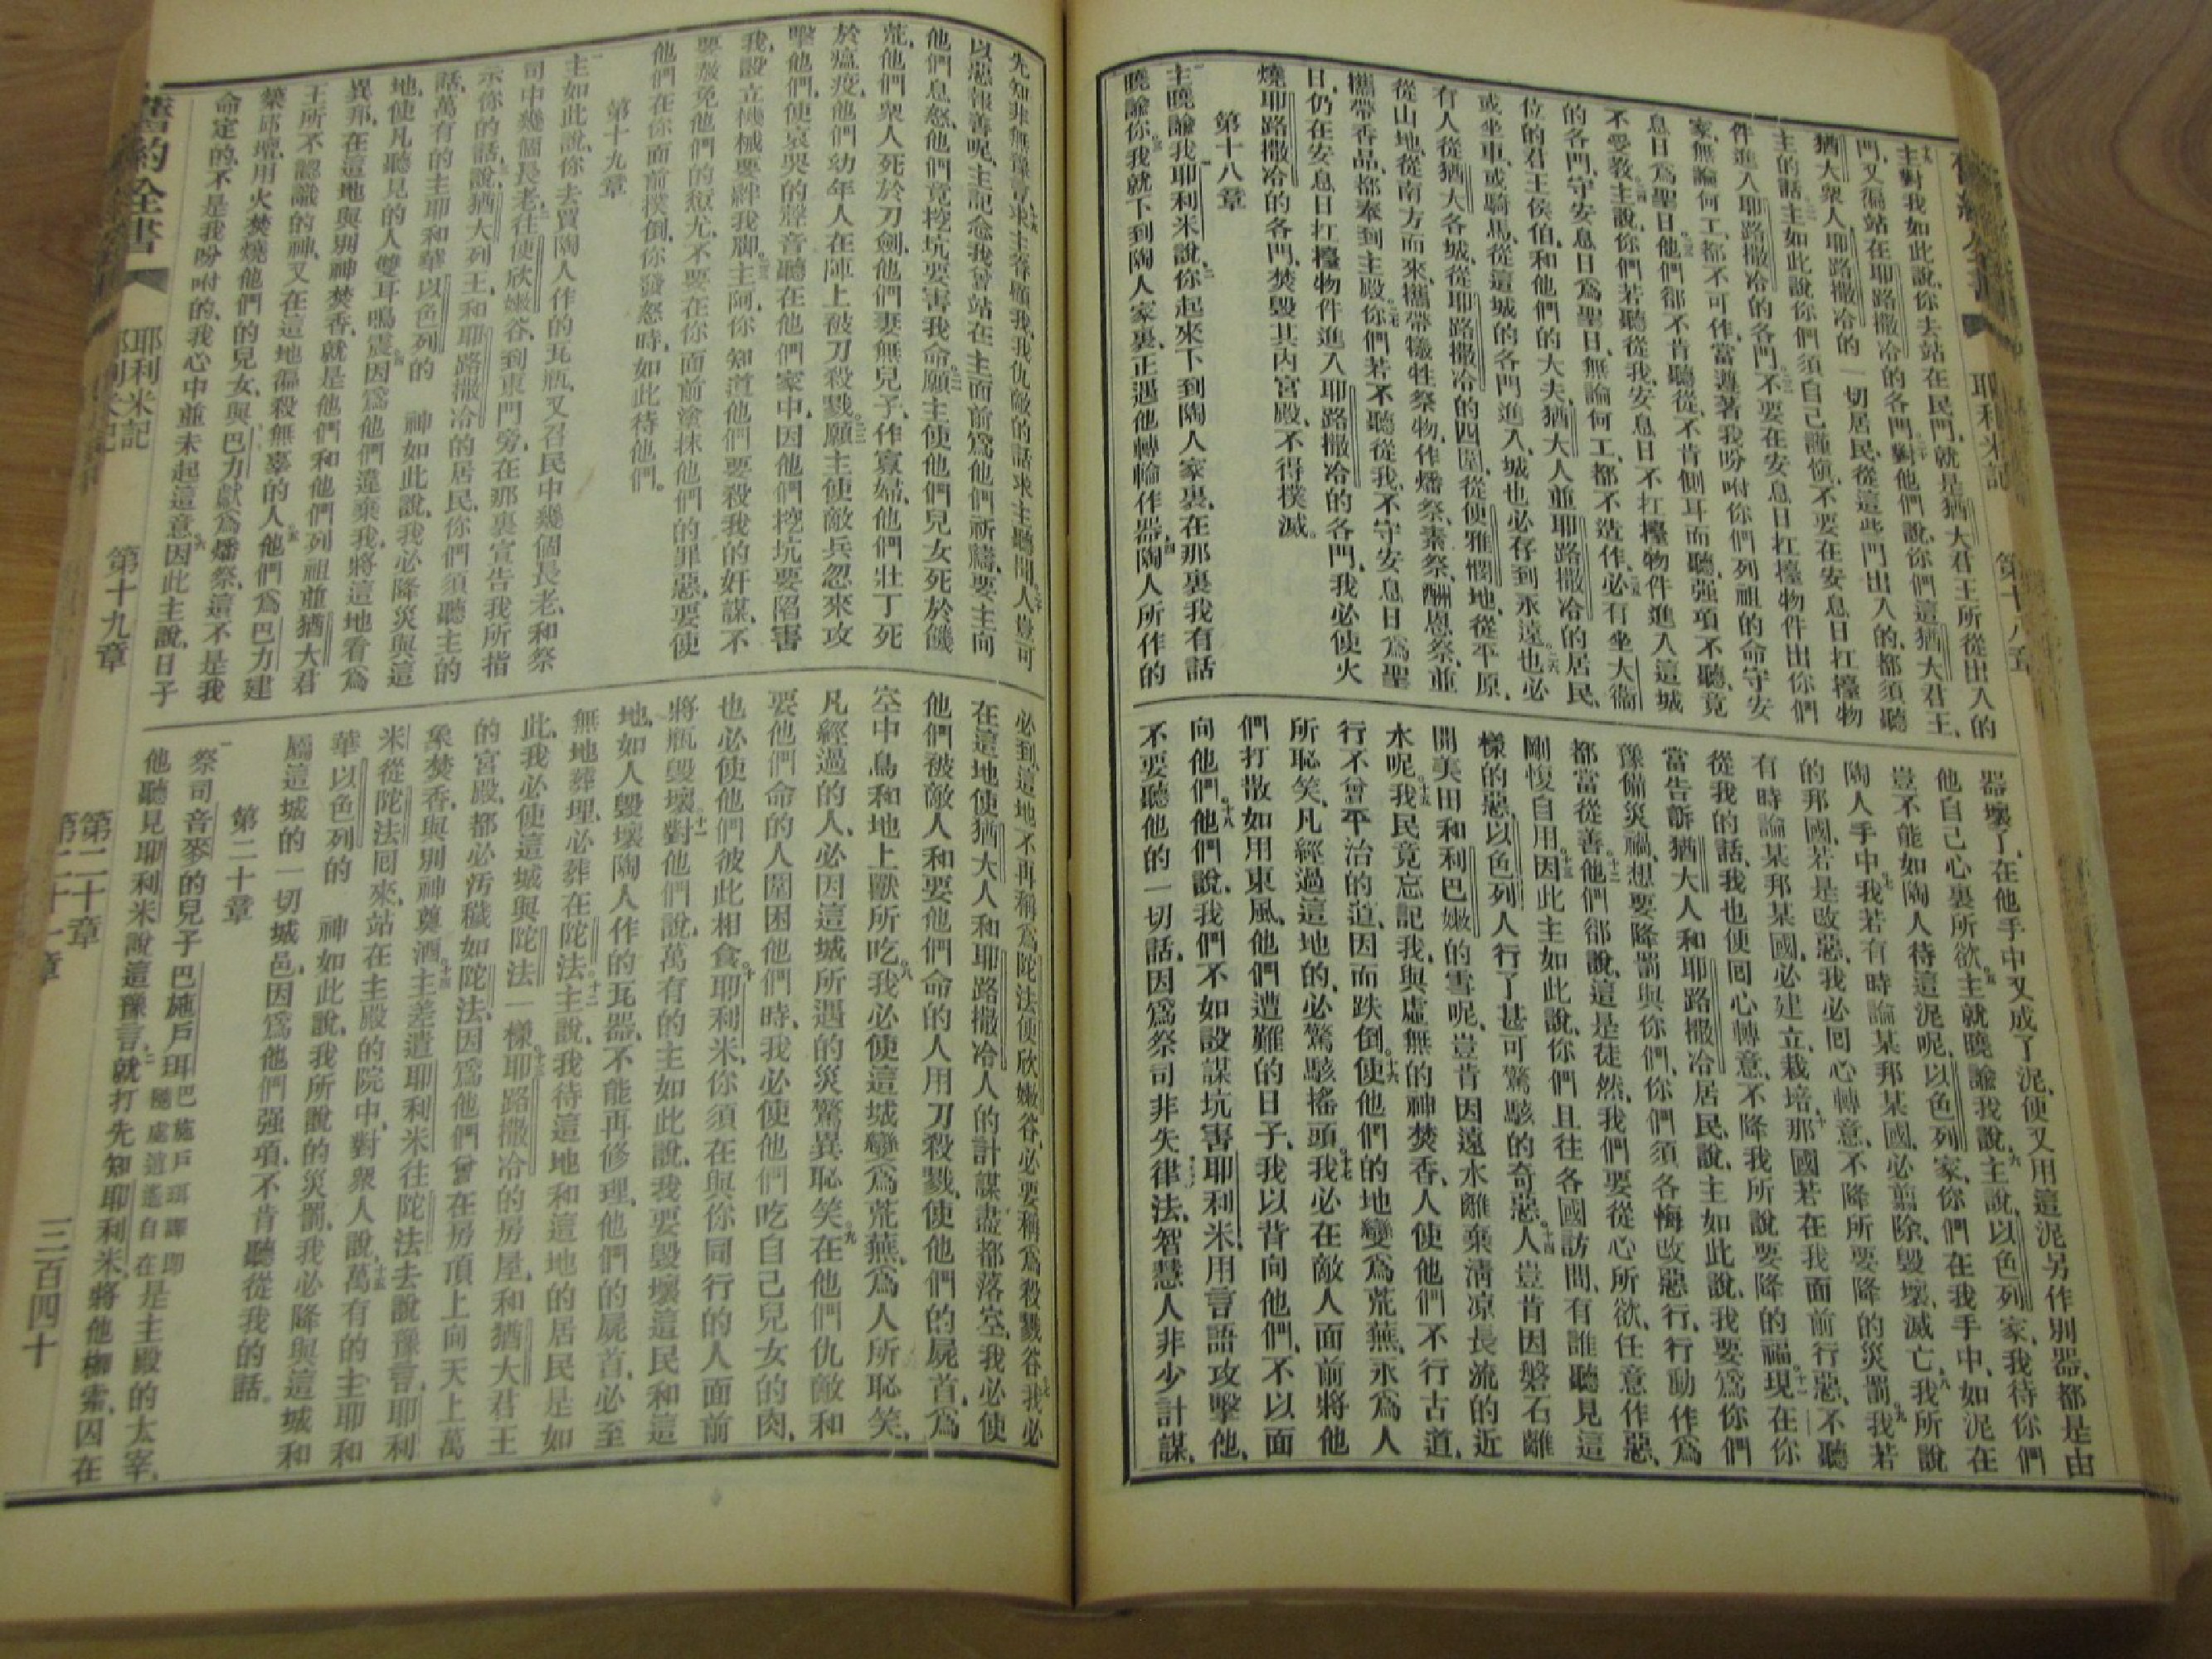 耶利米記
主對我如此說、你去站在民門、就是猶大君王所從出入的
門、又徧站在耶路撒冷的各門、對他們說、你們這猶大君王、
猶大衆人、耶路撒冷的一切居民、從這些門出入的、都須聽
主的話、主如此說、你們須自己謹愼、不要在安息日扛擡物
件進入耶路撒冷的各門、不要在安息日扛擡物件出你們
家、無論何工、都不可作、當遵著我吩咐你們列祖的命守安
息日爲聖日、他們都不肯聽從、不肯側耳而聽、強項不聽、竟
不受教、主說、你們若聽從我、安息日不扛擡物件進入這城
的各門、守安息日爲聖日、無論何工、都不造作、必有坐大衞
位的君王侯伯、和他們的大夫、猶大人並耶路撒冷的居民、
或坐車、或騎馬、從這城的各門進入、城也必存到永遠、也必
有人從猶大各城、從耶路撒冷的四圍、從便雅憫地、從平原、
從山地、從南方而來、攜帶犧牲祭物、作燔祭、素祭、酬恩祭、並
攜帶香品、都奉到主殿、你們若不聽從我、不守安息日爲聖
日、仍在安息日扛擡物件進入耶路撒冷的各門、我必使火
燒耶路撒冷的各門、焚毀其內宮殿、不得撲滅。
第十八章
主曉諭我耶利米說、你起來下到陶人家裏、在那裏我有話
曉諭你、我就下到陶人家裏、正遇他轉輪作器、陶人所作的
器壞了、在他手中又成了泥、便又用這泥另作別器、都是由
他自己心裏所欲、主就曉諭我說、主說、以色列家、我待你們
豈不能如陶人待這泥呢、以色列家、你們在我手中、如泥在
陶人手中、我若有時論某邦某國、必翦除、毀壞、滅亡、我所說
的邦國、若是改惡、我必回心轉意、不降所要降的災罰、我若
有時論某邦某國、必建立、栽培、那國若在我面前行惡、不聽
從我的話、我也便回心轉意、不降我所說要降的福、現在你
當告訴猶大人和耶路撒冷居民、說、主如此說、我要爲你們
豫備災禍、想要降罰與你們、你們須各悔改惡行、行動作爲
都當從善、他們卻說、這是徒然、我們要從心所欲、任意作惡、
剛愎自用、因此主如此說、你們且往各國訪問、有誰聽見這
樣的惡、以色列人行了甚可驚駭的奇惡、人豈肯因磐石離
開美田和利巴嫩的雪呢、豈肯因遠水離棄清凉長流的近
水呢、我民竟忘記我、與虛無的神焚香、人使他們不行古道、
行不曾平治的道、因而跌倒、使他們的地變爲荒蕪、永爲人
所恥笑、凡經過這地的、必驚駭搖頭、我必在敵人面前將他
們打散如用東風、他們遭難的日子、我以背向他們、不以面
向他們、他們說、我們不如設謀坑害耶利米、用言語攻擊他、
不要聽他的一切話、因爲祭司非失律法、智慧人非少計謀、
先知非無豫言、求主眷顧我、我仇敵的話求主聽聞、人豈可
以惡報善呢、主記念我曾站在主面前、爲他們祈禱、要主向
他們息怒、他們竟挖坑要害我命、願主使他們兒女死於饑
荒、他們衆人死於刀劍、他們妻無兒子、作寡婦、他們壯丁死
於瘟疫、他們幼年人在陣上被刀殺戮、願主使敵兵忽來攻
擊他們、使哀哭的聲音聽在他們家中、因他們挖坑要陷害
我、設立機械要絆我脚、主阿、你知道他們要殺我的奸謀、不
要赦免他們的愆尤、不要在你面前塗抹他們的罪惡、要使
他們在你面前撲倒、你發怒時、如此待他們。
第十九章
主如此說、你去買陶人作的瓦瓶、又召民中幾個長老、和祭
司中幾個長老、往便欣嫩谷、到東門旁、在那裏宣告我所指
示你的話、說、猶大列王、和耶路撒冷的居民、你們須聽主的
話、萬有的主耶和華以色列的 神如此說、我必降災與這
地、使凡聽見的人雙耳鳴震、因爲他們違棄我、將這地看爲
異邦、在這地與別神焚香、就是他們和他們列祖並猶大君
王所不認識的神、又在這地徧殺無辜的人、他們爲巴力建
築邱壇、用火焚燒他們的兒女、與巴力獻爲燔祭、這不是我
命定的、不是我吩咐的、我心中並未起這意、因此主說、日子
必到、這地不再稱爲陀法便欣嫩谷、必要稱爲殺戮谷、我必
在這地使猶大人和耶路撒冷人的計謀、盡都落空、我必使
他們被敵人和要他們命的人用刀殺戮、使他們的屍首、爲
空中鳥和地上獸所吃、我必使這城變爲荒蕪、爲人所恥笑、
凡經過的人、必因這城所遇的災驚異恥笑、在他們仇敵和
要他們命的人圍困他們時、我必使他們吃自己兒女的肉、
也必使他們彼此相食、耶利米、你須在與你同行的人面前
將瓶毀壞、對他們說、萬有的主如此說、我要毀壞這民和這
地、如人毀壞陶人作的瓦器、不能再修理、他們的屍首、必至
無地葬埋、必葬在陀法、主說、我待這地和這地的居民是如
此、我必使這城與陀法一樣、耶路撒冷的房屋、和猶大君王
的宮殿、都必汚穢如陀法、因爲他們曾在房頂上向天上萬
象焚香、與別神奠酒、主差遣耶利米往陀法去說豫言、耶利
米從陀法回來、站在主殿的院中、對衆人說、萬有的主耶和
華以色列的 神如此說、我所說的災罰、我必降與這城和
屬這城的一切城邑、因爲他們强項、不肯聽從我的話。
第二十章
祭司音麥的兒子巴施戶珥巴施戶珥譯卽隨處逍遙自在是主殿的太宰、
他聽見耶利米說這豫言、就打先知耶利米、將他枷索、囚在
舊約全書 耶利米記 第十九章 第二十章 三百四十
第二十一章